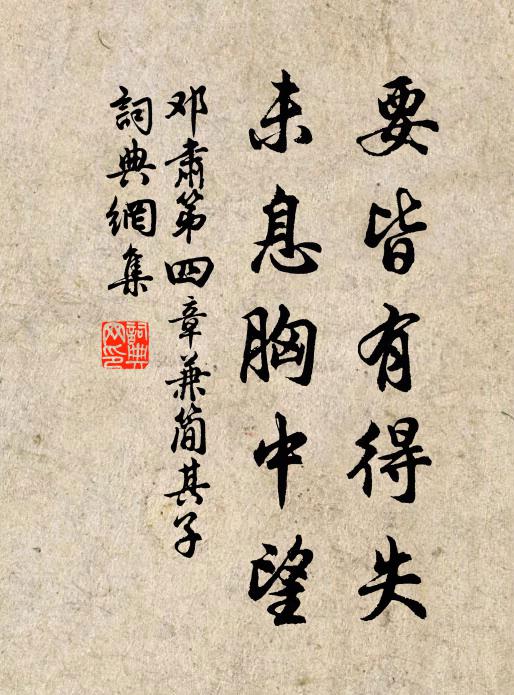 要皆有得失
未息胸中望
邓肃第四章兼简其子
詞典網集
詞典網印